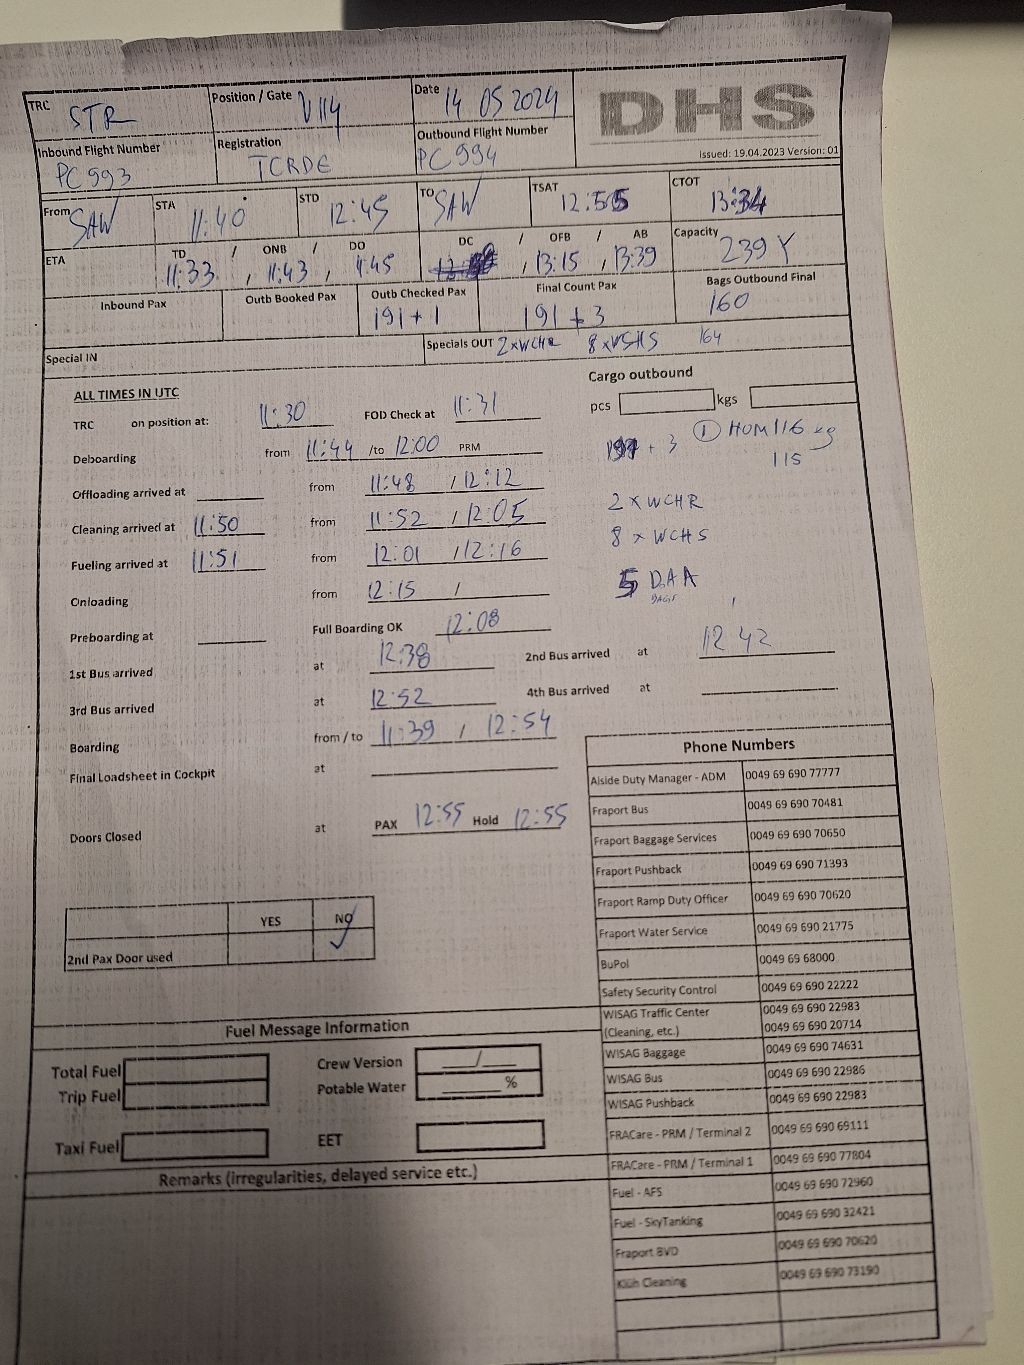 TRC STR Position / Gate V114 Date 14 05 2024 DHS
Issued: 19.04.2023 Version: 01
Inbound Flight Number PC 993 Registration TCRDE Outbound Flight Number PC 994
From SAW STA 11:40 STD 12:45 TO SAW TSAT 12:55 CTOT 13:34
ETA TD / ONB / DO DC / OFB / AB Capacity 239 Y
11:33 , 11:43 , 11:45 , 13:15 , 13:39
Inbound Pax Outb Booked Pax Outb Checked Pax Final Count Pax Bags Outbound Final
191 + 1 191 + 3 160
Special IN Specials OUT 2 x WCHR 8 x WCHS 164
ALL TIMES IN UTC Cargo outbound
TRC on position at: 11:30 FOD Check at 11:31 pcs kgs
Deboarding from 11:44 /to 12:00 PRM + 3 ① HUM 116 kg
115
Offloading arrived at from 11:48 / 12:12
2 x WCHR
Cleaning arrived at 11:50 from 11:52 / 12:05
8 x WCHS
Fueling arrived at 11:51 from 12:01 / 12:16
5 DAA
BAGS
Onloading from 12:15 /
Preboarding at Full Boarding OK 12:08
1st Bus arrived at 12:38 2nd Bus arrived at 12 42
3rd Bus arrived at 12:52 4th Bus arrived at
Boarding from / to 11:39 / 12:54
Final Loadsheet in Cockpit at
Doors Closed at PAX 12:55 Hold 12:55
YES NO
2nd Pax Door used ✓
Phone Numbers
Aiside Duty Manager - ADM 0049 69 690 77777
Fraport Bus 0049 69 690 70481
Fraport Baggage Services 0049 69 690 70650
Fraport Pushback 0049 69 690 71393
Fraport Ramp Duty Officer 0049 69 690 70620
Fraport Water Service 0049 69 690 21775
BuPol 0049 69 68000
Safety Security Control 0049 69 690 22222
WISAG Traffic Center 0049 69 690 22983
(Cleaning, etc.) 0049 69 690 20714
WISAG Baggage 0049 69 690 74631
WISAG Bus 0049 69 690 22986
WISAG Pushback 0049 69 690 22983
FRACare - PRM / Terminal 2 0049 69 690 69111
FRACare - PRM / Terminal 1 0049 69 690 77804
Fuel - AFS 0049 69 690 72960
Fuel - SkyTanking 0049 69 690 32421
Fraport BVD 0049 69 690 70620
Klüh Cleaning 0049 69 690 73190
Fuel Message Information
Total Fuel Crew Version /
Trip Fuel Potable Water %
Taxi Fuel EET
Remarks (irregularities, delayed service etc.)